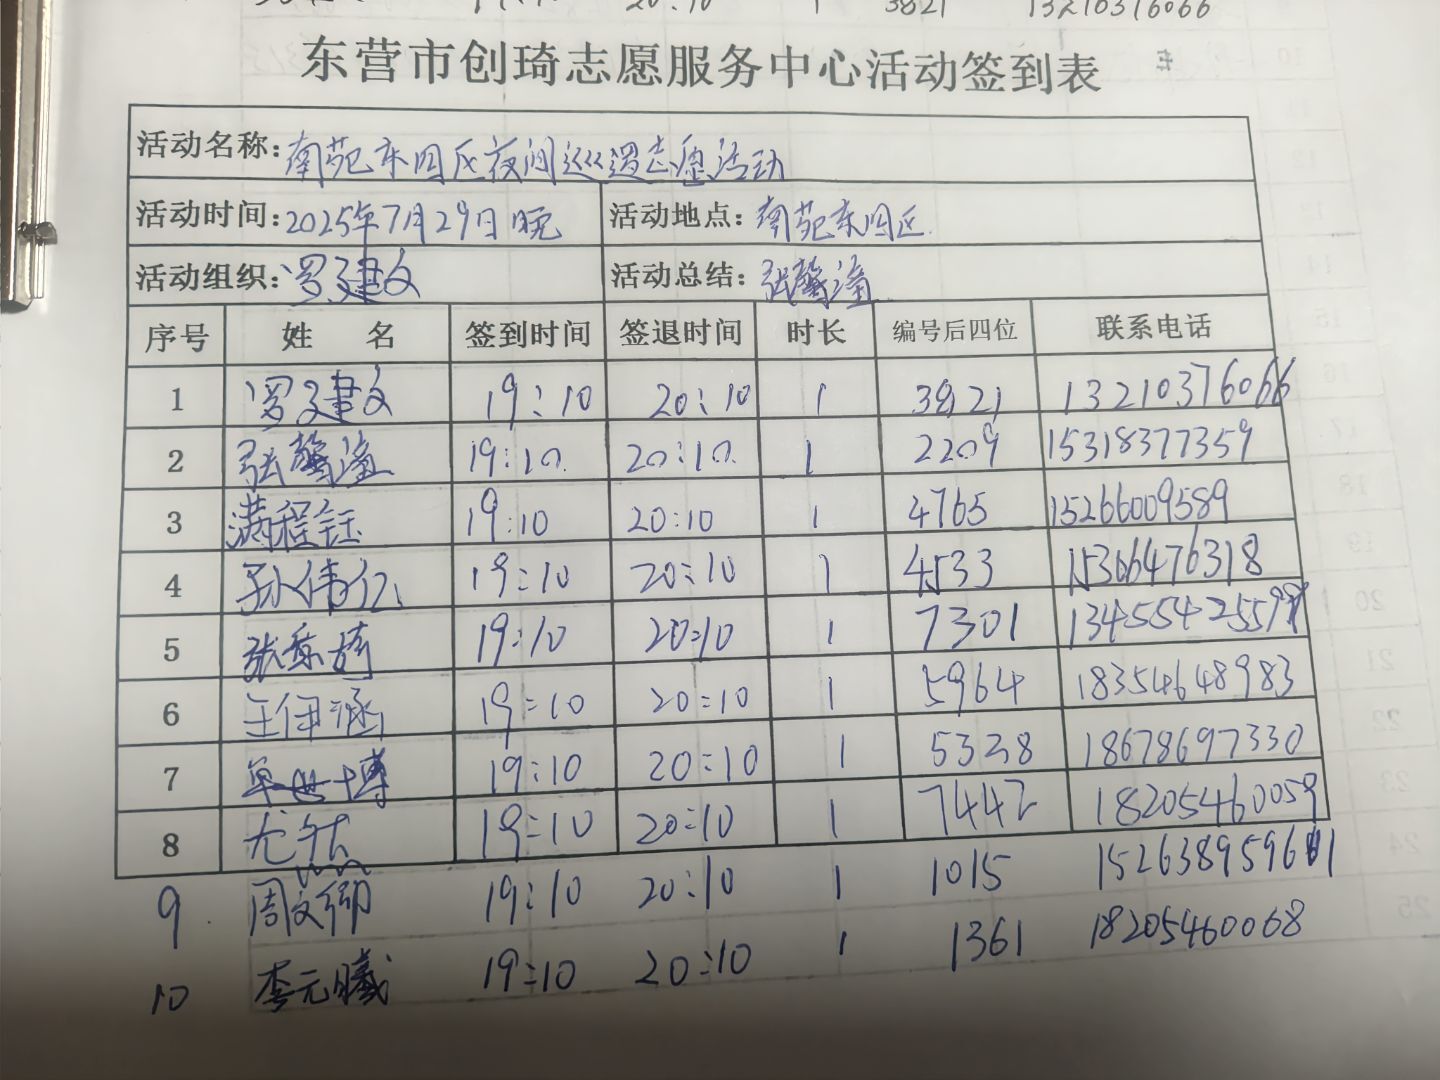 19:10 20:10 1 3821 13210376066
东营市创琦志愿服务中心活动签到表
活动名称: 南苑东四区夜间巡逻志愿活动
活动时间: 2025年7月29日晚 活动地点: 南苑东四区
活动组织: 罗建文 活动总结: 张馨潼
序号 姓 名 签到时间 签退时间 时长 编号后四位 联系电话
1 罗建文 19:10 20:10 1 3821 13210376066
2 张馨潼 19:10 20:10 1 2209 15318377359
3 满程钰 19:10 20:10 1 4765 15266009589
4 孙伟仁 19:10 20:10 1 4533 15306476318
5 张 19:10 20:10 1 7301
6 王伊涵 19:10 20:10 1 5964 18354648983
7 单世博 19:10 20:10 1 5328 18678697330
8 尤 19:10 20:10 1 7442 18205460059
9 周文卿 19:10 20:10 1 1015
10 李元曦 19:10 20:10 1 1361 18205460068